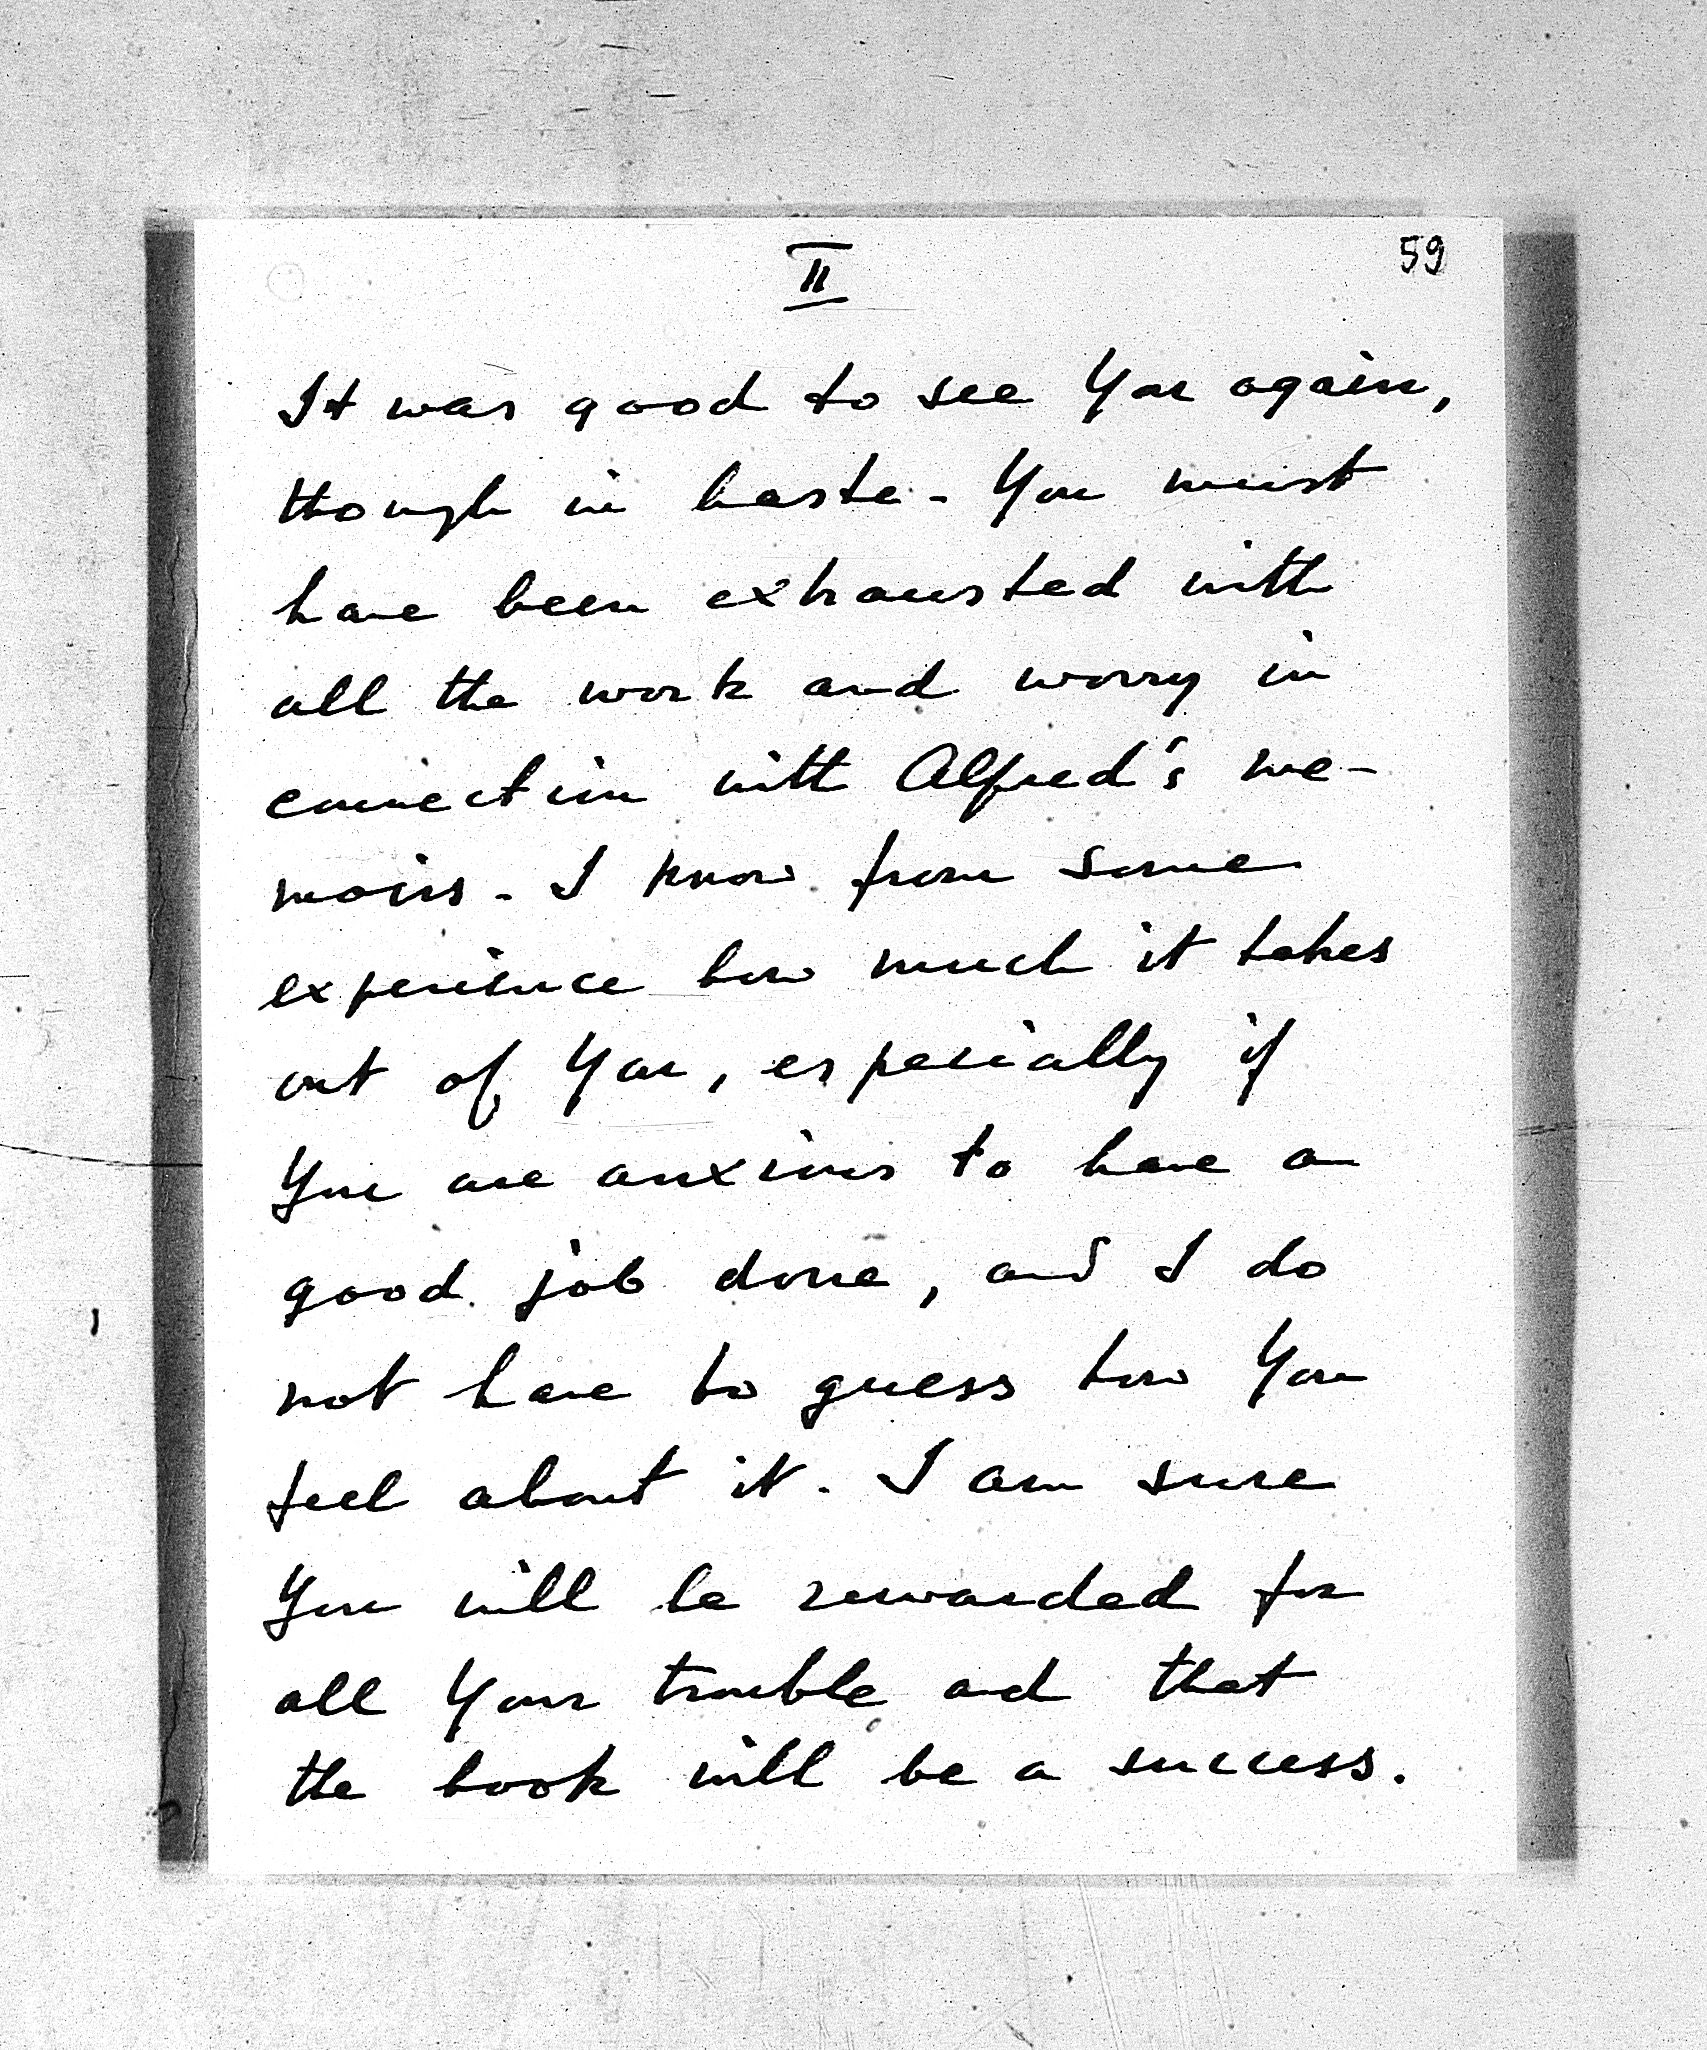 II
59
It was good to see You again,
though in haste. You must
have been exhausted with
all the work and worry in
connection with Alfred's me-
moirs. I know from some
experience how much it takes
out of You, especially if
You are anxious to have a
good job done, and I do
not have to guess how You
feel about it. I am sure
You will be rewarded for
all Your trouble and that
the book will be a success.